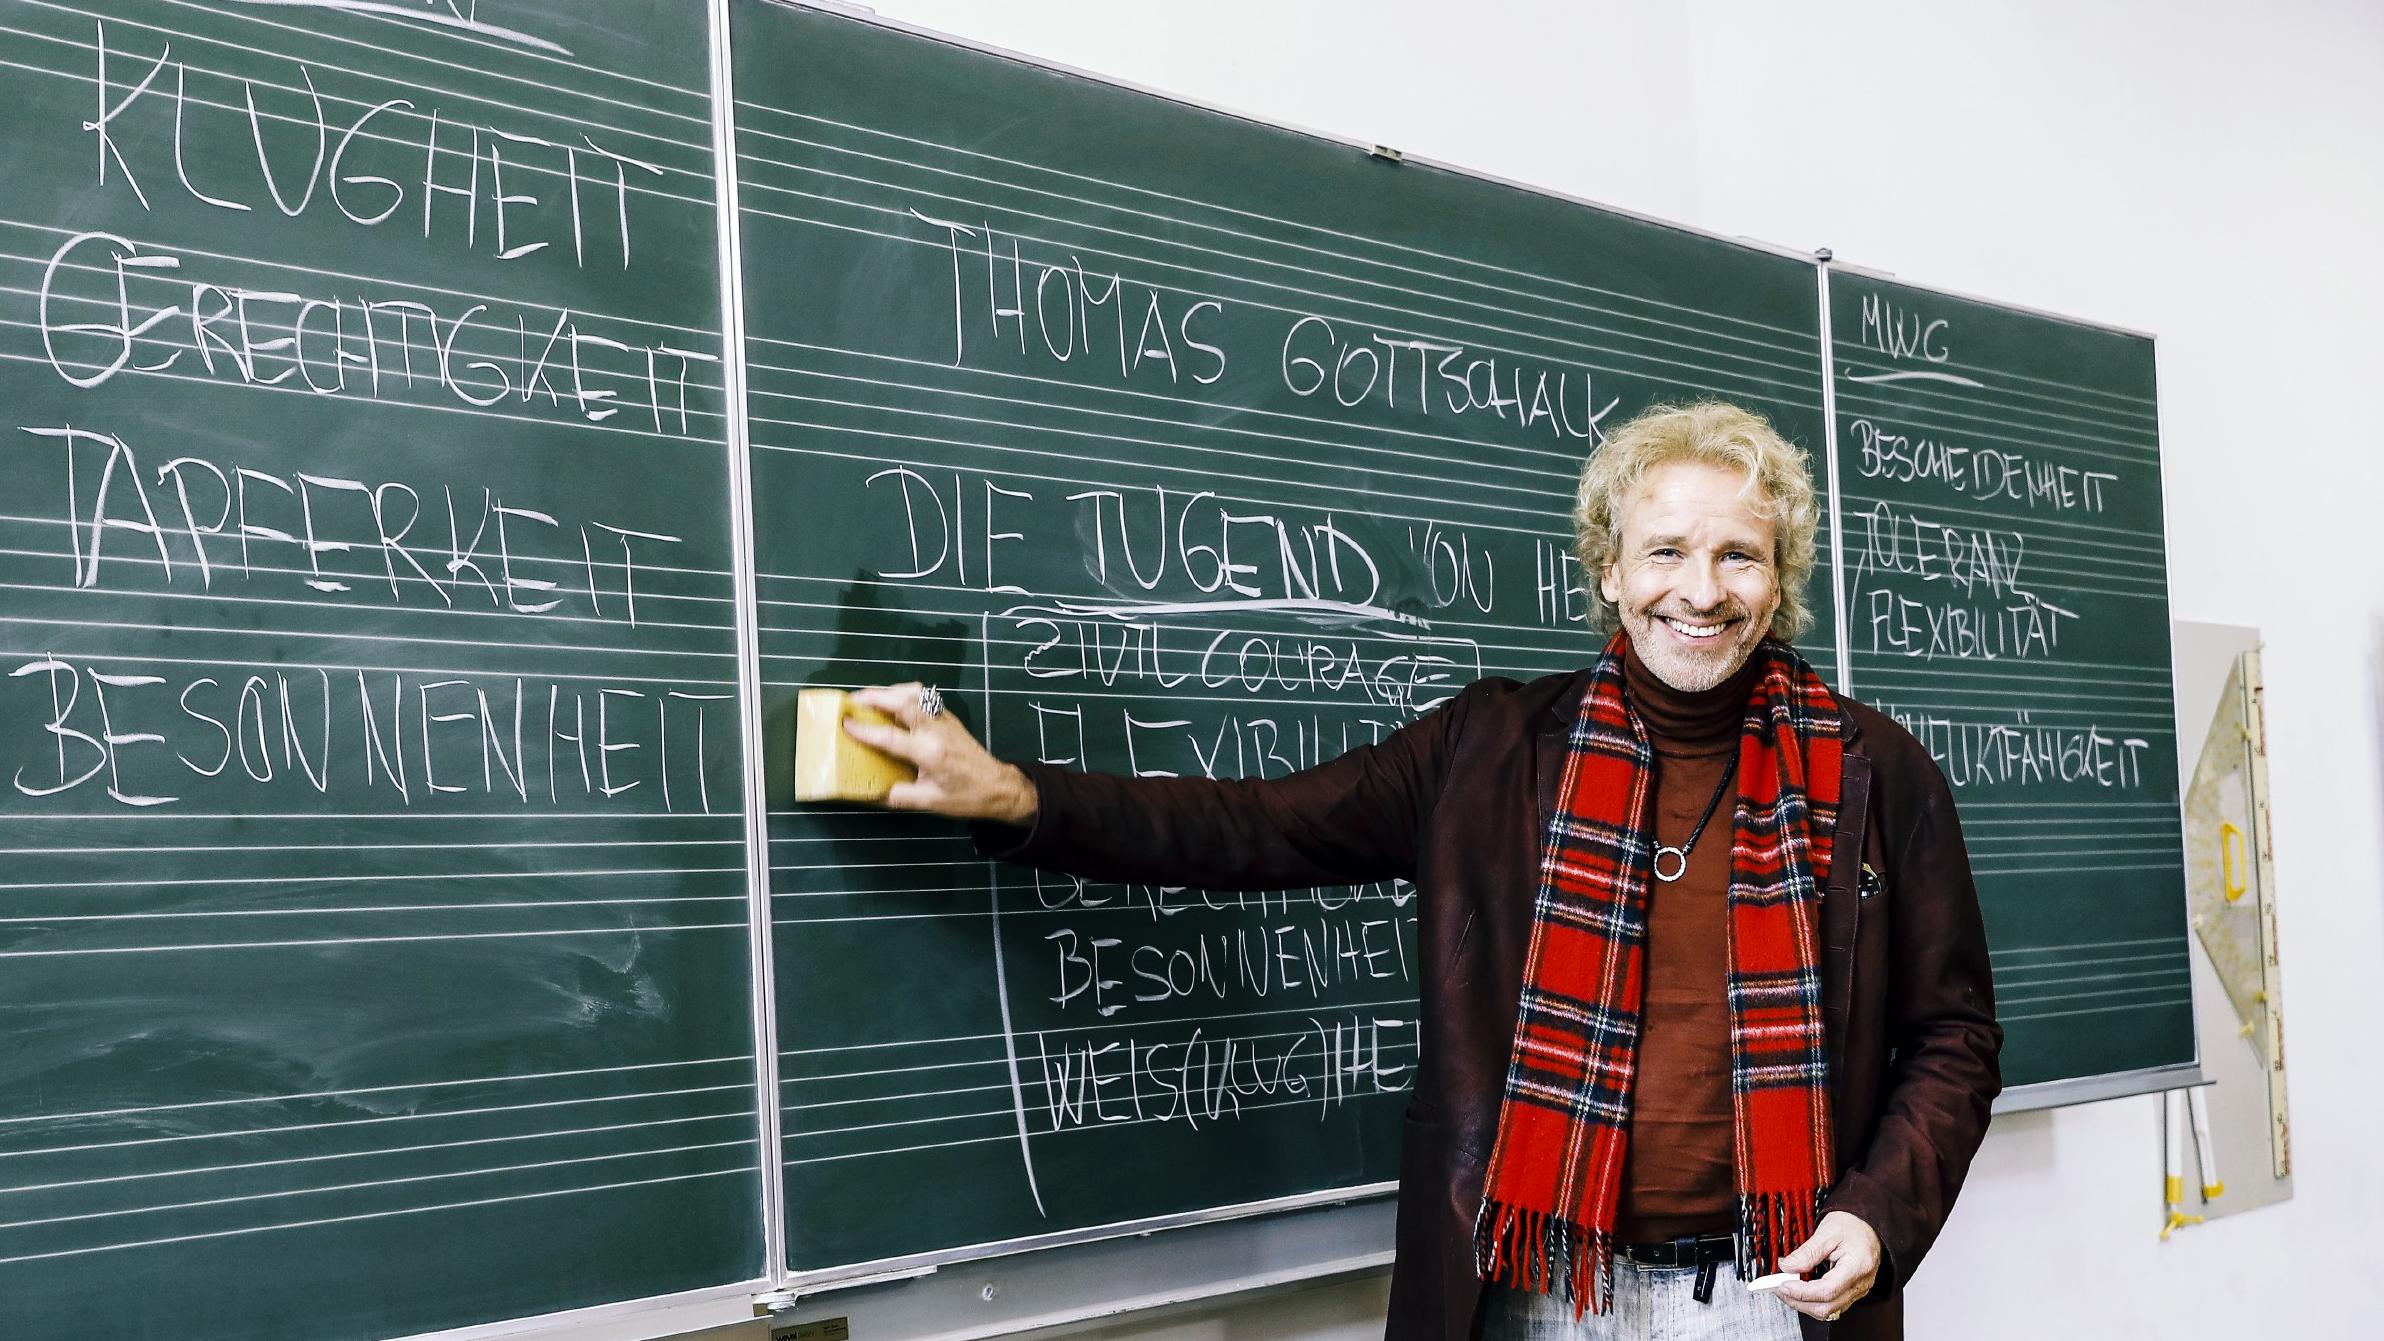 KLUGHEIT
GERECHTIGKEIT
TAPFERKEIT
BESONNENHEIT
THOMAS GOTTSCHALK
DIE TUGEND VON HE
ZIVILCOURAGE
FLEXIBILIT
BESONNENHEIT
WEIS(KLUG)HE
MWG
BESCHEIDENHEIT
TOLERANZ
FLEXIBILITÄT